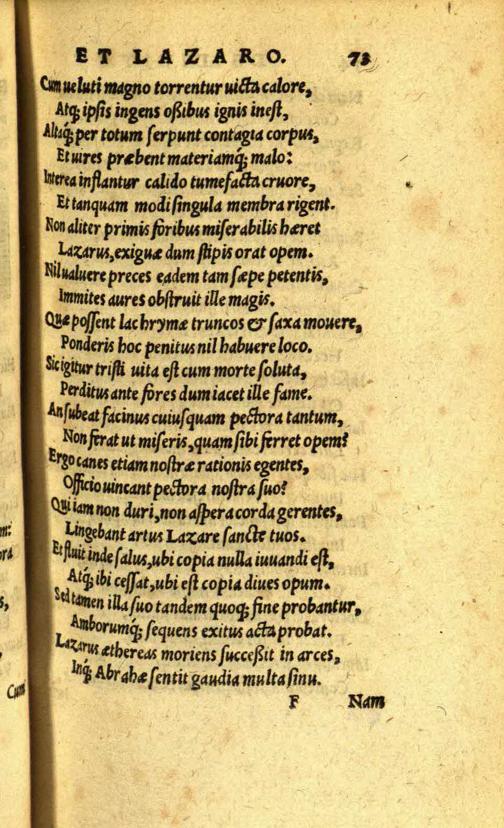 ET LAZARO. 73
Cum ueluti magno torrentur uicta calore,
Atq; ipsis ingens oßibus ignis inest,
Altaq; per totum serpunt contagia corpus,
Et uires præbent materiamq; malo:
Interea inflantur calido tumefacta cruore,
Et tanquam modi singula membra rigent.
Non aliter primis foribus miserabilis hæret
Lazarus, exiguæ dum stipis orat opem.
Nil ualuere preces eadem tam sæpe petentis,
Immites aures obstruit ille magis.
Quæ possent lachrymæ truncos & saxa mouere,
Ponderis hoc penitus nil habuere loco.
Sic igitur tristi uita est cum morte soluta,
Perditus ante fores dum iacet ille fame.
An subeat facinus cuiusquam pectora tantum,
Non ferat ut miseris, quam sibi ferret opem?
Ergo canes etiam nostræ rationis egentes,
Officio uincant pectora nostra suo?
Qui iam non duri, non aspera corda gerentes,
Lingebant artus Lazare sancte tuos.
Et fluit inde salus, ubi copia nulla iuuandi est,
Atq; ibi cessat, ubi est copia diues opum.
Sed tamen illa suo tandem quoq; fine probantur,
Amborumq; sequens exitus acta probat.
Lazarus æthereas moriens succeßit in arces,
Inq; Abrahæ sentit gaudia multa sinu.
F Nam
m:
ora
s,
Cum